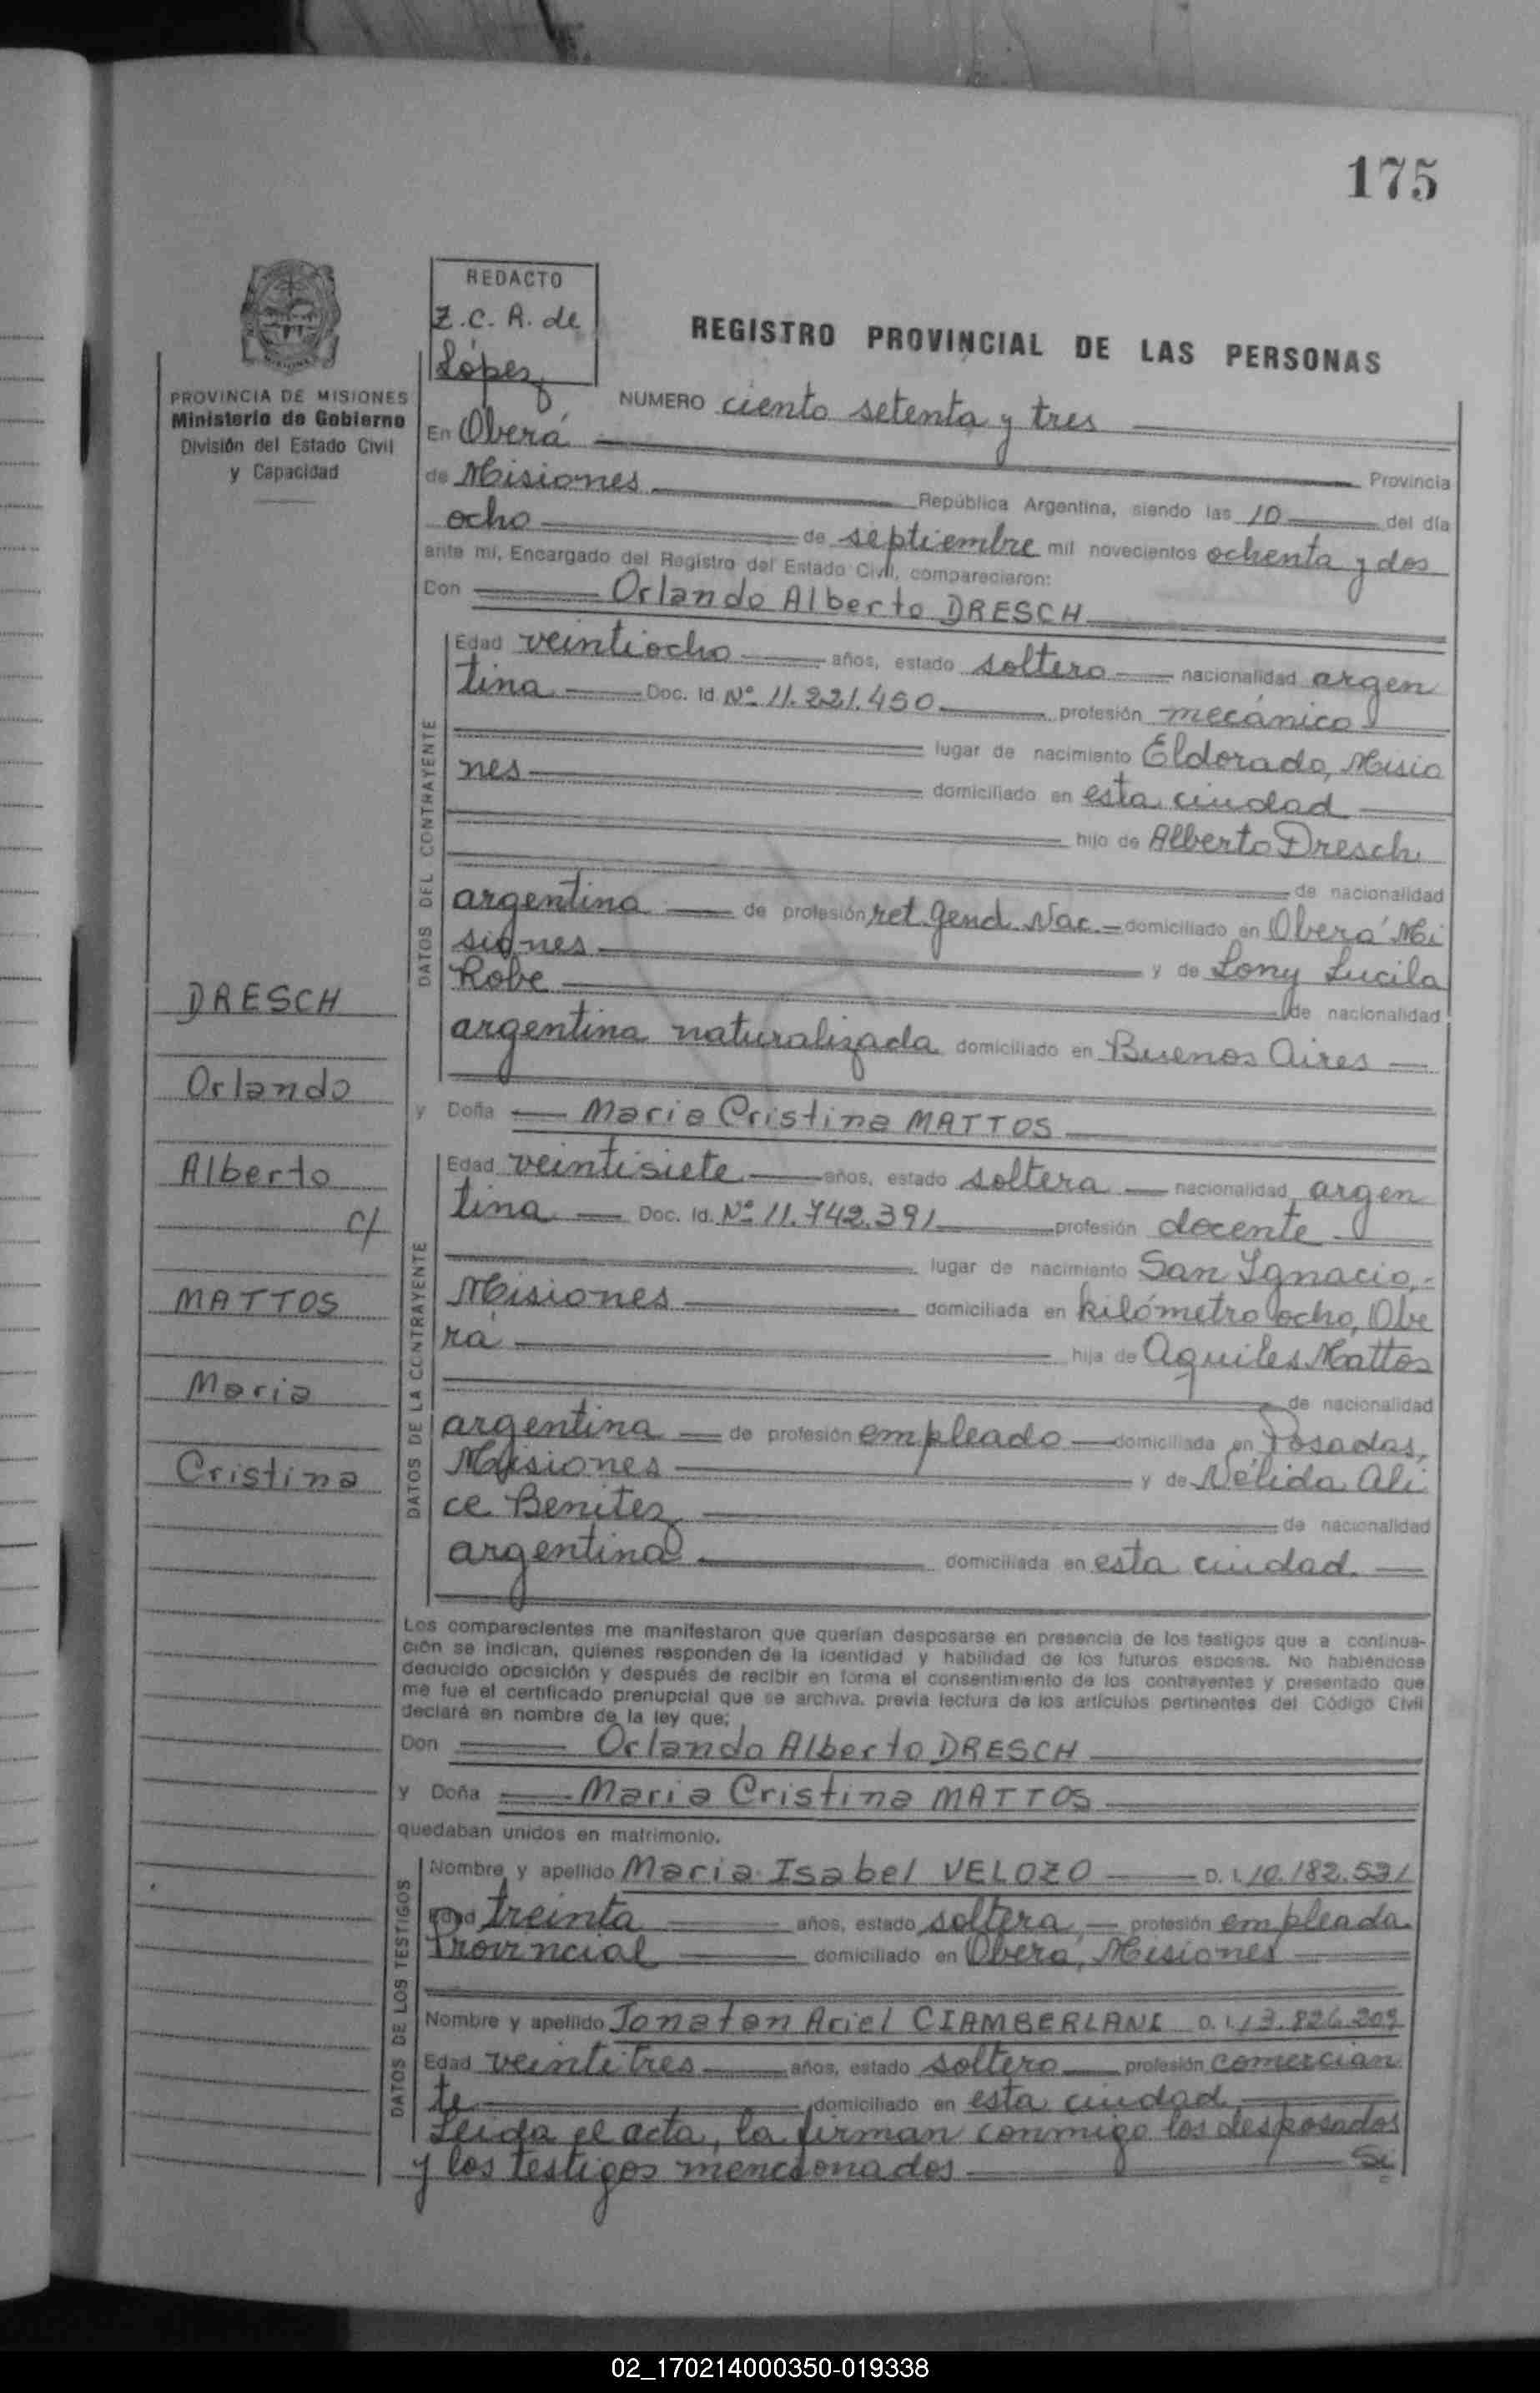 175
REDACTO
Z. C. R. de
López
REGISTRO PROVINCIAL DE LAS PERSONAS
PROVINCIA DE MISIONES
Ministerio de Gobierno
División del Estado Civil
y Capacidad
NUMERO ciento setenta y tres
En Oberá Provincia
de Misiones República Argentina, siendo las 10 del día
ocho de septiembre mil novecientos ochenta y dos
ante mí, Encargado del Registro del Estado Civil, comparecieron:
Don Orlando Alberto DRESCH
DATOS DEL CONTRAYENTE
Edad veintiocho años, estado soltero nacionalidad argen
tina Doc. Id. Nº 11.221.450 profesión mecánico
lugar de nacimiento Eldorado, Misio
nes domiciliado en esta ciudad
hijo de Alberto Dresch
de nacionalidad
argentina de profesión ret. Gend. Nac. domiciliado en Oberá Mi
siones y de Lony Lucila
Robe de nacionalidad
argentina naturalizada domiciliado en Buenos Aires
y Doña Maria Cristina MATTOS
DATOS DE LA CONTRAYENTE
Edad veintisiete años, estado soltera nacionalidad argen
tina Doc. Id. Nº 11.742.391 profesión docente
lugar de nacimiento San Ignacio,
Misiones domiciliada en kilómetro ocho, Obe
rá hija de Aquiles Mattos
de nacionalidad
argentina de profesión empleado domiciliada en Posadas,
Misiones y de Nélida Ali
ce Benitez de nacionalidad
argentina domiciliada en esta ciudad.
DRESCH
Orlando
Alberto
c/
MATTOS
Maria
Cristina
Los comparecientes me manifestaron que querían desposarse en presencia de los testigos que a continua-
ción se indican, quienes responden de la identidad y habilidad de los futuros esposos. No habiéndose
deducido oposición y después de recibir en forma el consentimiento de los contrayentes y presentado que
me fue el certificado prenupcial que se archiva, previa lectura de los artículos pertinentes del Código Civil
declaré en nombre de la ley que:
Don Orlando Alberto DRESCH
y Doña Maria Cristina MATTOS
quedaban unidos en matrimonio.
DATOS DE LOS TESTIGOS
Nombre y apellido Maria Isabel VELOZO D. I. 10.182.531
Edad treinta años, estado soltera profesión empleada
Provincial domiciliado en Oberá, Misiones
Nombre y apellido Jonatan Ariel CIAMBERLANI D. I. 13.826.209
Edad veintitres años, estado soltero profesión comercian
te domiciliado en esta ciudad
Leida el acta, la firman conmigo los desposados
y los testigos mencionados
02_170214000350-019338